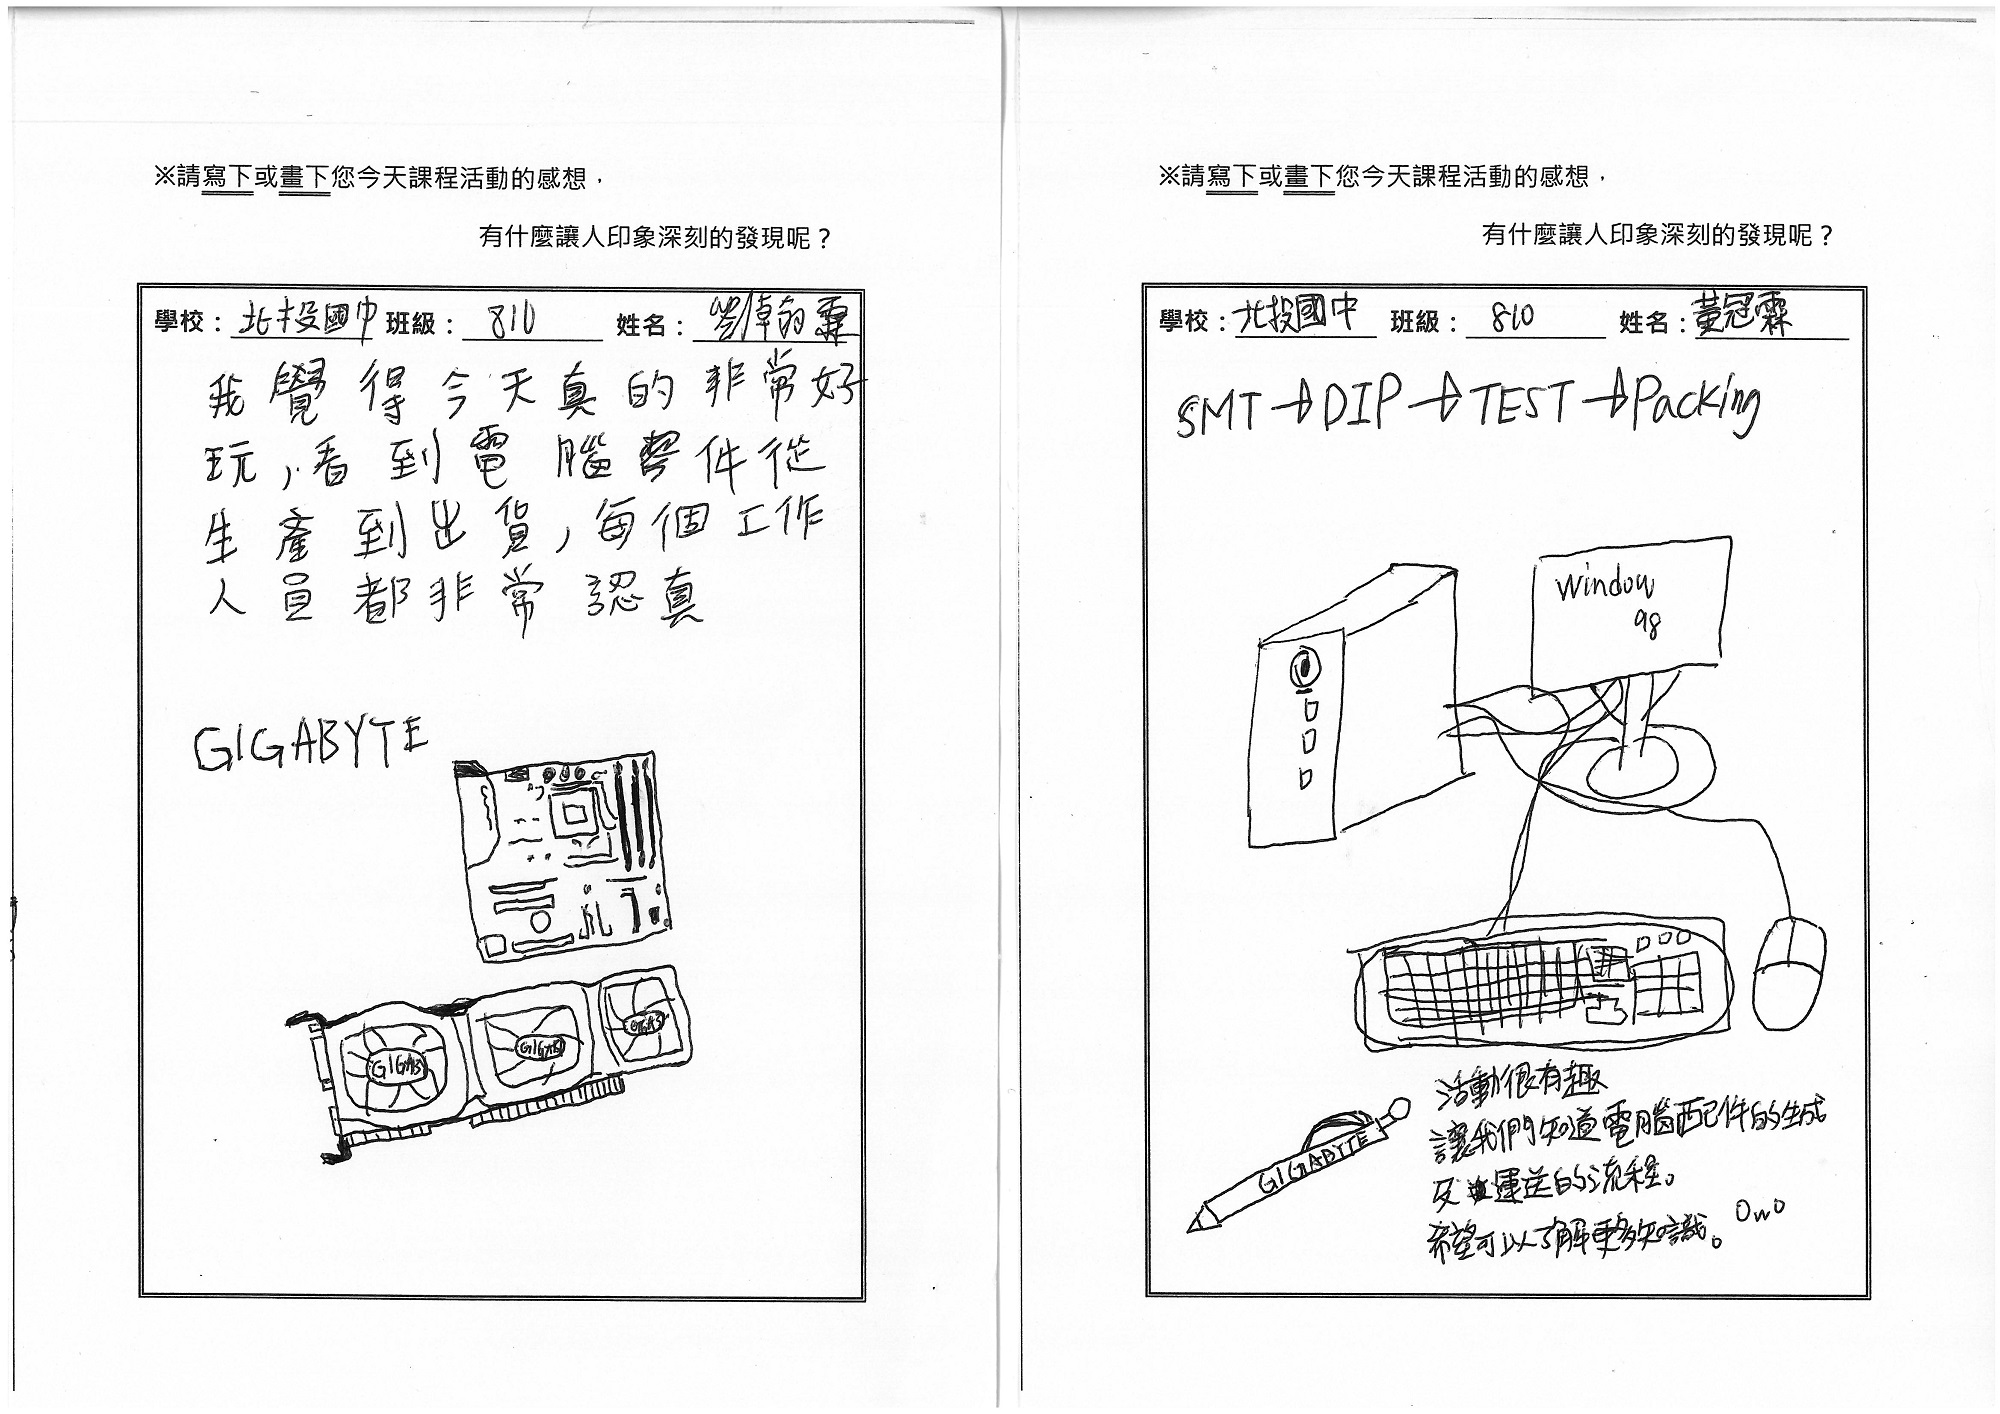 ※請寫下或畫下您今天課程活動的感想，
有什麼讓人印象深刻的發現呢？
學校：北投國中 班級：810 姓名：
我覺得今天真的非常好
玩，看到電腦零件從
生產到出貨，每個工作
人員都非常認真
GIGABYTE
GIGAB
GIGAB
GIGAB
※請寫下或畫下您今天課程活動的感想，
有什麼讓人印象深刻的發現呢？
學校：北投國中 班級：810 姓名：黃冠霖
SMT→DIP→TEST→Packing
window
98
GIGABYTE
活動很有趣
讓我們知道電腦配件的生成
及運送的流程。
希望可以了解更多知識。OwO